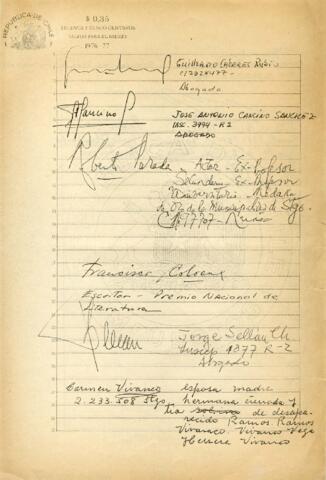 REPUBLICA DE CHILE
$ 0,35
TREINTA Y CINCO CENTAVOS
VALIDO PARA EL BIENIO
1976 - 77
GUILLERMO CACERES RUBIO
Abogado
JOSE ANTONIO CANCINO SANCHEZ
INSC. 3994 - R2
ABOGADO
Roberto Parada Actor - Ex-Profesor
Ex-Profesor
Universitario - Medalla
de Oro de la Municipalidad de Stgo.
Francisco Coloane
Escritor - Premio Nacional de
Literatura
Jorge Sellan Ch
Inscrip 1877 R-2
Abogado
Carmen Vivanco esposa madre
2.233.508 Stgo hermana cuñada y
tía de desapa-
recido Ramos Ramos
Vivanco. Vivanco Vega
Herrera Vivanco